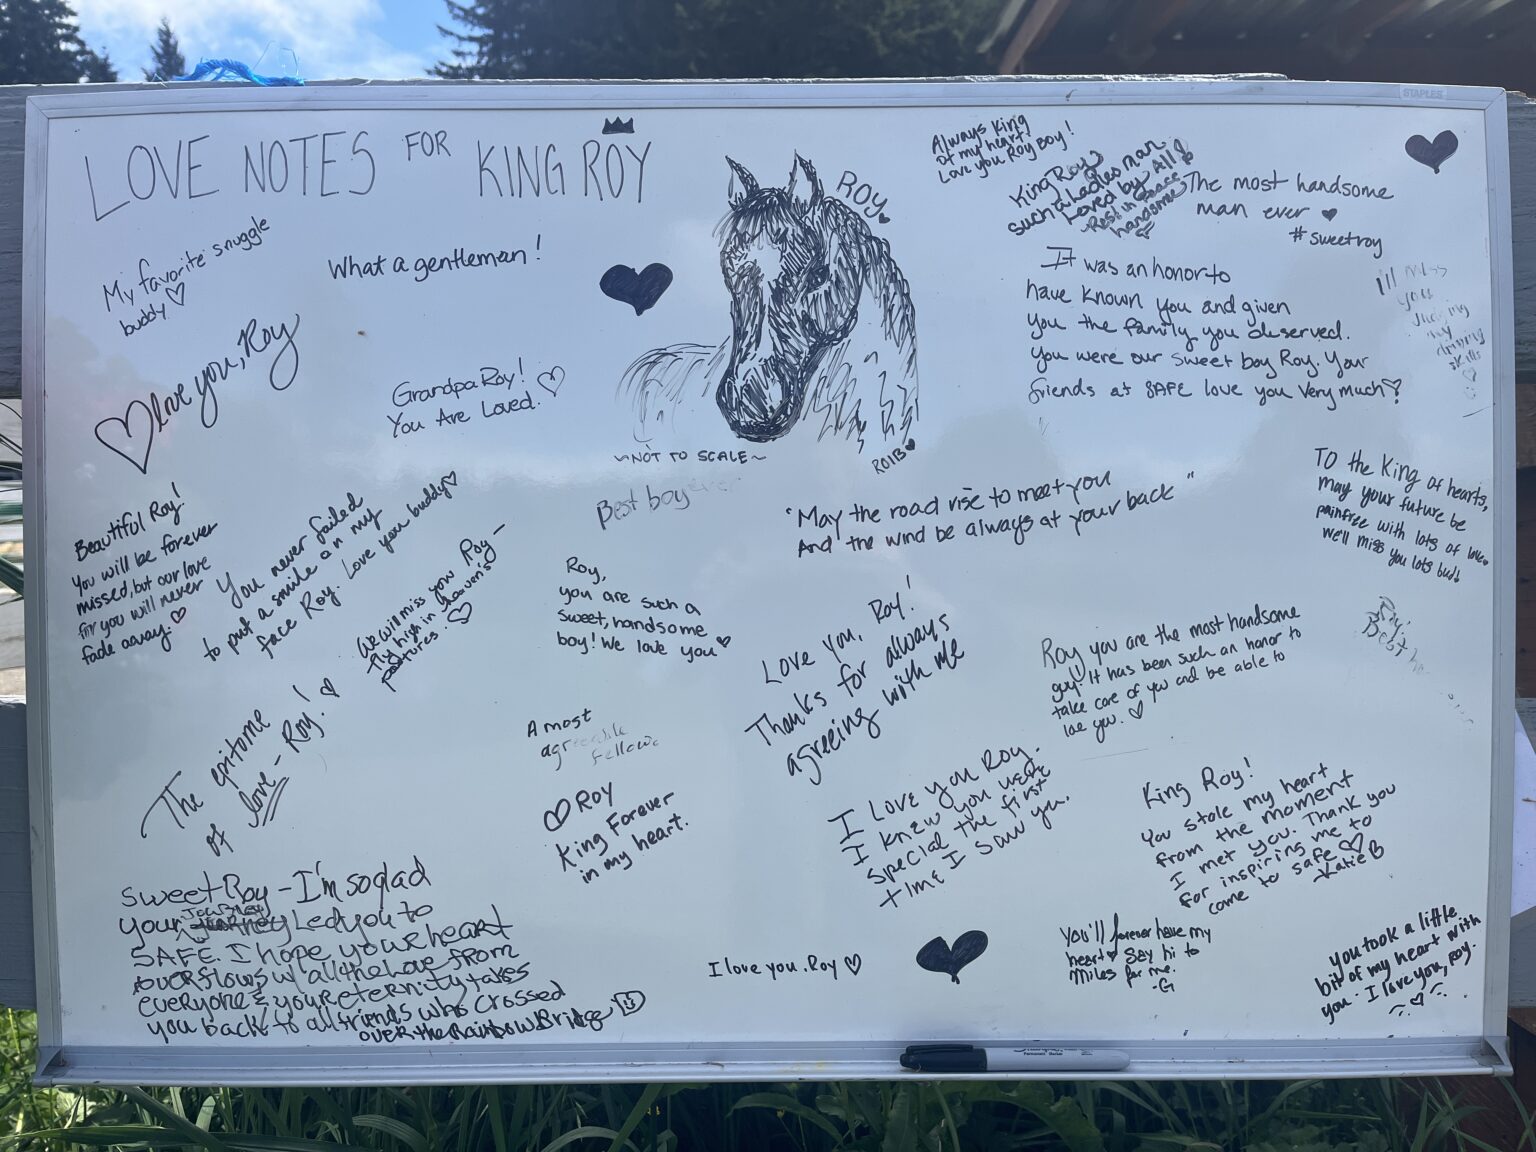 LOVE NOTES FOR KING ROY
STAPLES
My favorite snuggle
buddy ♡
What a gentleman!
♡ love you, Roy
Grandpa Roy!
You Are Loved. ♡
ROY
~NOT TO SCALE~
Best boy ever
Always King
of my heart!
Love you Roy Boy!
King Roy
such a Ladies man
Loved by All!
Rest in Peace
handsome
The most handsome
man ever ♥
#sweetroy
It was an honor to
have known you and given
you the family you deserved.
You were our sweet boy Roy. Your
friends at SAFE love you very much♡!
I'll miss
you
judging
my
driving
skills
♡
Beautiful Roy!
You will be forever
missed, but our love
for you will never
fade away. ♡
You never failed
to put a smile on my
face Roy. Love you buddy♡
We will miss you Roy –
Fly high in heaven's
pastures. ♡
Roy,
you are such a
sweet, handsome
boy! We love you ♡
"May the road rise to meet you
And the wind be always at your back"
TO the King of hearts,
may your future be
painfree with lots of love.
we'll miss you lots bud!
The epitome
of love – Roy! ♡
A most
agreeable
fellow.
♡ ROY
King Forever
in my heart.
Love you, Roy!
Thanks for always
agreeing with me
Roy you are the most handsome
guy! It has been such an honor to
take care of you and be able to
love you. ♡
Roy,
Best
I Love you Roy.
I knew you were
special the first
time I saw you.
King Roy!
You stole my heart
from the moment
I met you. Thank you
for inspiring me to
come to safe ♡
-Katie B
Sweet Roy – I'm so glad
your Journey Led you to
SAFE. I hope your heart
overflows w/ all the love from
everyone & your eternity takes
you back to all friends who crossed
over the Rainbow Bridge
I love you, Roy ♡
You'll forever have my
heart♥ Say hi to
Miles for me.
-G
you took a little
bit of my heart with
you. I love you, Roy.
♡
Permanent Marker